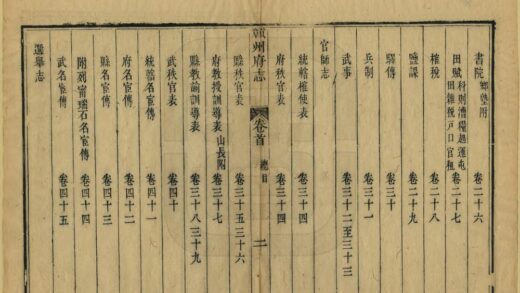 書院 鄉塾附 卷二十六
田賦 科則漕糧起運屯田雜稅戸口官租 卷二十七
榷稅 卷二十八
鹽課 卷二十九
驛傳 卷三十
兵制 卷三十一
武事 卷三十二至三十三
官師志
統轄權使表 卷三十四
府秩官表 卷三十四
贛州府志 卷首 總目 二
縣秩官表 卷三十五 三十六
府教授訓導表 山長附 卷三十七
縣教諭訓導表 卷三十八 三十九
武秩官表 卷四十
統轄名宦傳 卷四十一
府名宦傳 卷四十二
縣名宦傳 卷四十三
附列甯瑞石名宦傳 卷四十四
武名宦傳 卷四十五
選舉志